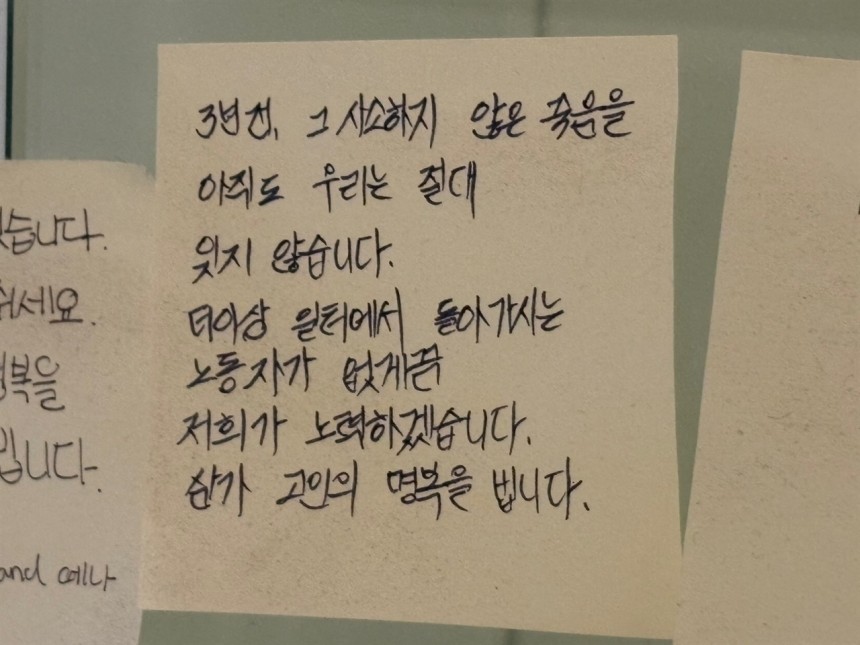 3년 전, 그 사소하지 않은 죽음을
아직도 우리는 절대
잊지 않습니다.
더이상 일터에서 돌아가시는
노동자가 없게끔
저희가 노력하겠습니다.
삼가 고인의 명복을 빕니다.
습니다.
세요.
복을
빕니다.
and 예나